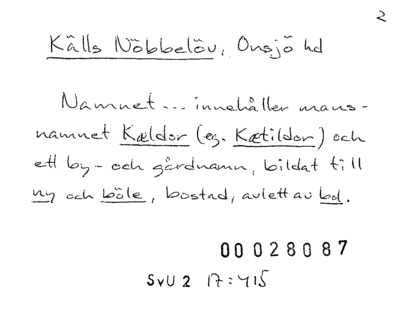 2
Källs Nöbbelöv, Onsjö hd
Namnet ... innehåller mans-
namnet Kældor (eg. Kætildor) och
ett by- och gårdnamn, bildat till
ny och böle, bostad, avlett av bol.
00 028087
SvU 2 17:415